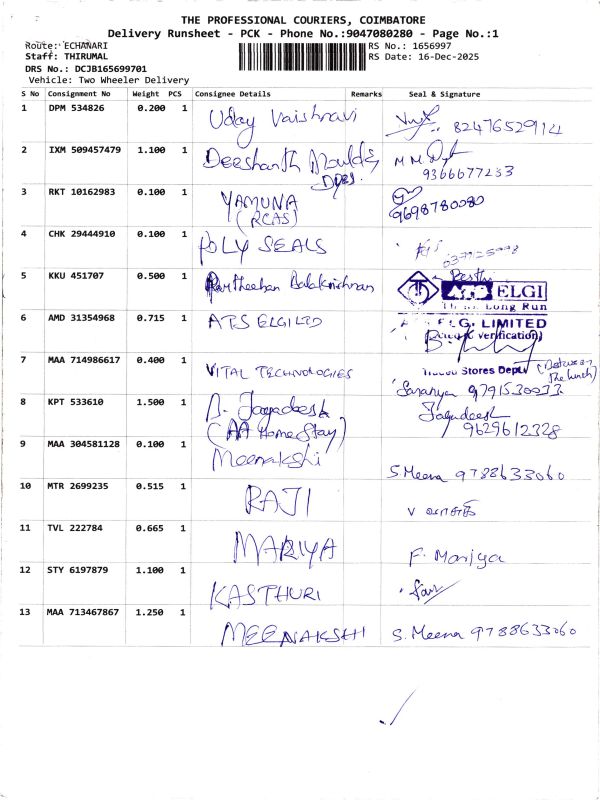 THE PROFESSIONAL COURIERS, COIMBATORE
Delivery Runsheet - PCK - Phone No.:9047080280 - Page No.:1
Route: ECHANARI
RS No.: 1656997
Staff: THIRUMAL
RS Date: 16-Dec-2025
DRS No.: DCJB165699701
Vehicle: Two Wheeler Delivery
S No Consignment No Weight PCS Consignee Details Remarks Seal & Signature
1 DPM 534826 0.200 1 Uday Vaishnavi 82476529114
2 IXM 509457479 1.100 1 Deeshanth M M 9366677233
3 RKT 10162983 0.100 1 YAMUNA 9698780080
(RCAS)
4 CHK 29444910 0.100 1 POLY SEALS
5 KKU 451707 0.500 1 Partheeban Balakrishnan
ELGI
6 AMD 31354968 0.715 1 ATS ELGI LTD
ELGI LIMITED
verification)
7 MAA 714986617 0.400 1 VITAL TECHNOLOGIES
Stores Dept.
Saranya 9791530033
8 KPT 533610 1.500 1 D. Jagadeesh Jagadeesh
(AA Home Stay) 9629612328
9 MAA 304581128 0.100 1 Meenakshi S. Meena 9788633060
10 MTR 2699235 0.515 1 RAJI
11 TVL 222784 0.665 1 MARIYA F. Mariya
12 STY 6197879 1.100 1 KASTHURI
13 MAA 713467867 1.250 1 MEENAKSHI S. Meena 9788633060